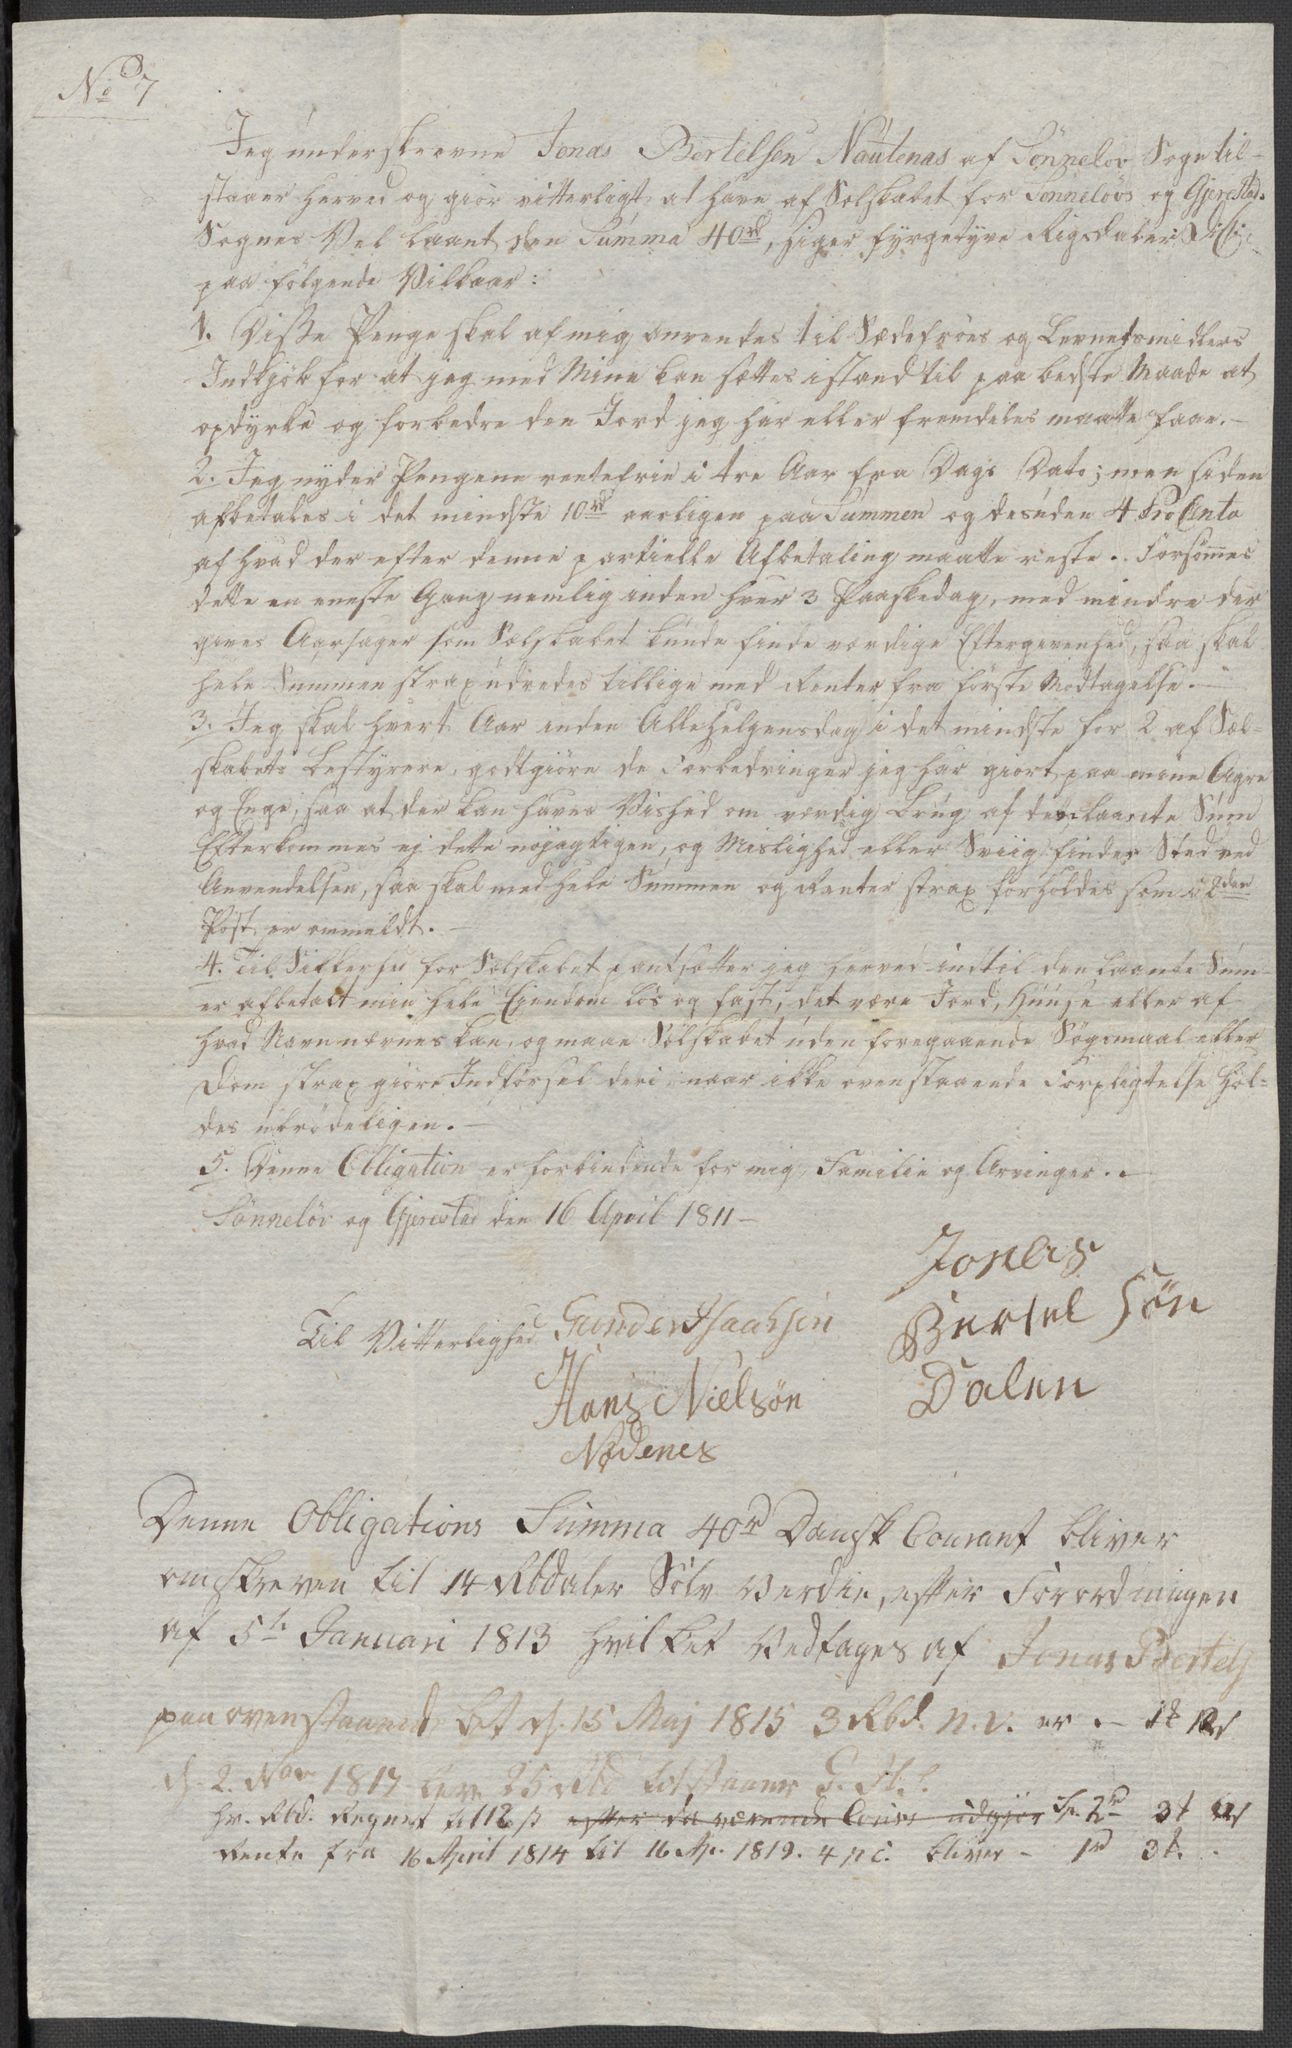 No 7
Jeg underskrevne Jonas Bertelsen Nautenas af Sönnelöv Sogn til-
staaer herved og giör vitterligt, at have af Selskabet for Sönnelövs og Gjerestad
Sognes Vel laant den Summa 40rd, siger fyrgetyve Rigsdaler
paa fölgende Vilkaar:
1. Disse Penge skal af mig anvendes til Sædefröes og Levnetsmidlers
Indkjöb for at jeg med Mine kan sættes istand til paa bedste Maade at
opdyrke og forbedre den Jord jeg har eller fremdeles maatte faae. —
2. Jeg nyder Pengene rentefrie i tre Aar fra Dags Dato; men siden
afbetales i det mindste 10rd aarligen paa Summen og desuden 4 ProCento
af hvad der efter denne partielle Afbetaling maatte reste. Forsömmes
dette en eneste Gang nemlig inden hver 3 Paaskedag, med mindre der
gives Aarsager som Selskabet kunde finde værdige Eftergivenhed, saa skal
hele Summen strax udredes tillige med Renter fra förste Modtagelse. —
3. Jeg skal hvert Aar inden Allehelgensdag i det mindste for 2 af Sel-
skabets Bestyrere godtgiöre de Forbedringer jeg har giort paa mine Agre
og Enge, saa at der kan haves Vished om værdig Brug af den laante Sum
Efterkommes ej dette nöjagtigen, og Mislighed eller Sviig finder Sted ved
Anvendelsen, saa skal med hele Summen og Renter strax forholdes som i 2den
Post er ommeldt. —
4. Til Sikkerhed for Selskabet pantsætter jeg herved indtil den laante Sum
er afbetalt min hele Eiendom lös og fast, det være Jord, Huuse eller af
hvad Navn nævnes kan, og maae Selskabet uden foregaaende Sögsmaal eller
Dom strax giöre Indförsel deri naar ikke ovenstaaende Forpligtelse hol-
des ubrödeligen. —
5. Denne Obligation er forbindende for mig, Familie og Arvinger. —
Sönnelöv og Gjerestad den 16 April 1811 —
Jonas
Bertel Søn
Dalen
Til Vitterlighed Gunder Isaachsen
Hans Nielsøn
Nødenes
Denne Obligations Summa 40rd Dansk Courant bliver
omskreven til 14 Rbdaler Sölv Verdie, efter Forordningen
af 5te Januari 1813 hvilket Vedtages af Jonas Bertels
paa ovenstaaende bet d. 15 Maj 1815 3 Rbd. N.V. er
d. 2. Nov 1817 25 Rbd tilstaaer
hv. Rbd. Regnet til 12 ß efter da værende Cours udgjör Sp. 2rd
Rente fra 16 April 1814 til 16 Ap. 1819. 4 p.c. bliver - 1rd